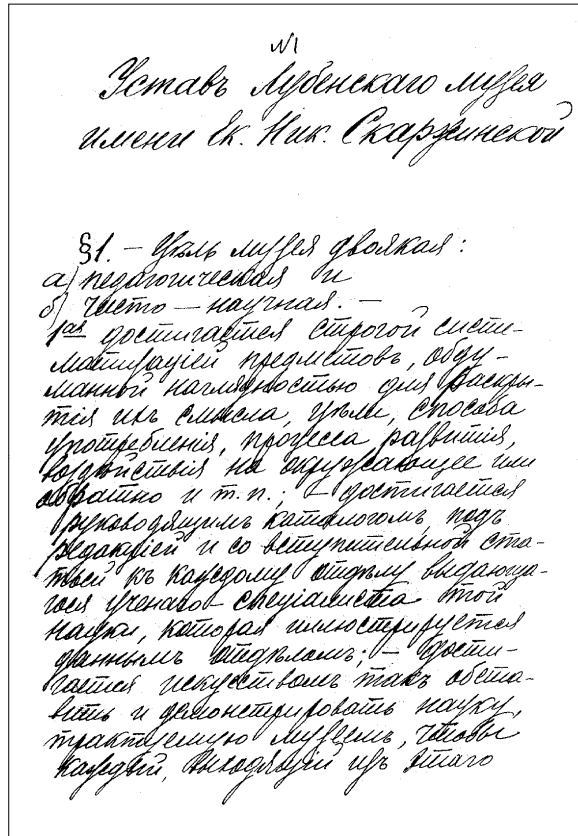 №1
Уставъ Лубенскаго музея
имени Ек. Ник. Скаржинской
§1. – Цѣль музея двоякая:
а) педагогическая и
б) чисто – научная. –
1ая достигается строгой систе-
матизаціей предметовъ, обду-
манной наглядностью для раскры-
тія ихъ смысла, цѣли, способа
употребленія, прогресса развитія,
воздѣйствія на окружающее или
обратно и т. п.; – достигается
руководящимъ каталогомъ подъ
редакціей и со вступительной ста-
тьей къ каждому отдѣлу выдающа-
гося ученаго – спеціалиста той
науки, которая иллюстрируется
даннымъ отдѣломъ; – дости-
гается искусствомъ такъ обста-
вить и демонстрировать науку,
трактуемую музеемъ, чтобы
каждый, выходящій изъ этаго